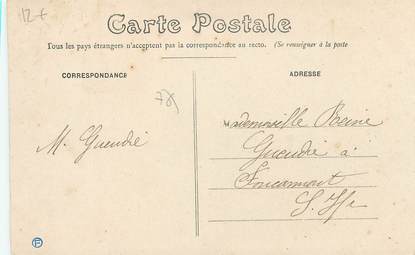 12 €
Carte Postale
Tous les pays étrangers n'acceptent pas la correspondance au recto. (Se renseigner à la poste
CORRESPONDANCE
ADRESSE
785
M. Gueudré
Mademoiselle Reine
Gueudré à
Foucarmont
S. Ifre